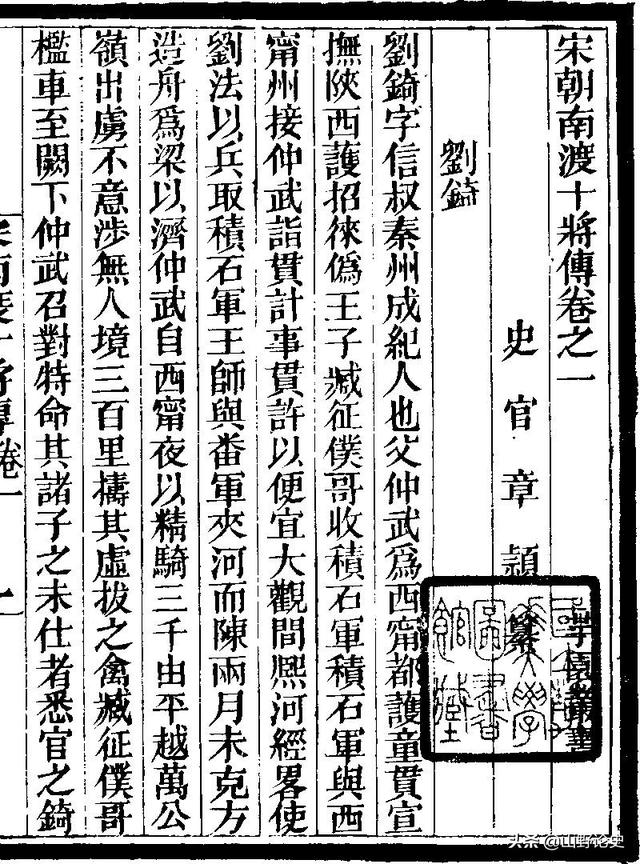 宋朝南渡十將傳卷之一 芋園叢書
史官章穎纂
劉錡
劉錡字信叔秦州成紀人也父仲武爲西甯都護童貫宣
撫陝西護招徠僞王子臧征僕哥收積石軍積石軍與西
甯州接仲武詣貫計事貫許以便宜大觀間熙河經畧使
劉法以兵取積石軍王師與畨軍夾河而陳兩月未克方
造舟爲梁以濟仲武自西甯夜以精騎三千由平越萬公
嶺出虜不意涉無人境三百里擣其虛拔之禽臧征僕哥
檻車至闕下仲武召對特命其諸子之未仕者悉官之錡
宋南渡十將傳卷一 一
大學圖書館藏
头条 @山野论史